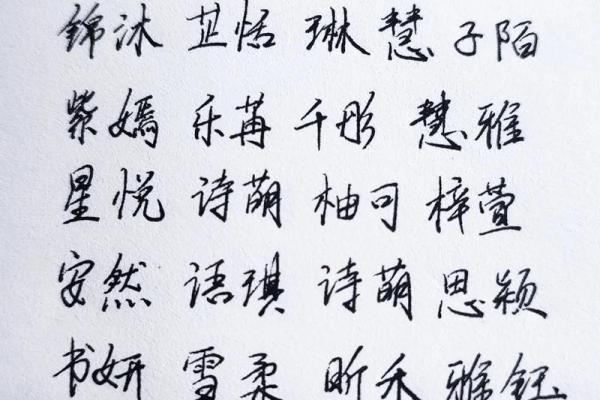 锦沐 芷恬 琳慧 子陌
紫嫣 乐苒 千彤 慧雅
星悦 诗萌 柚可 梓萱
安然 语琪 诗萌 思颖
书妍 雪柔 昕禾 雅钰